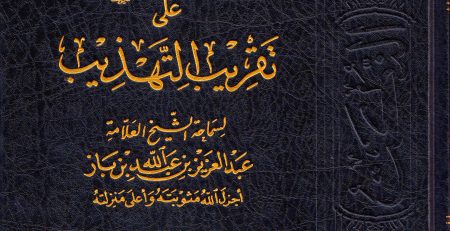 على
تقريب التهذيب
لسماحة الشيخ العلامة
عبد العزيز بن عبد الله بن باز
أجزل الله مثوبته وأعلى منزلته